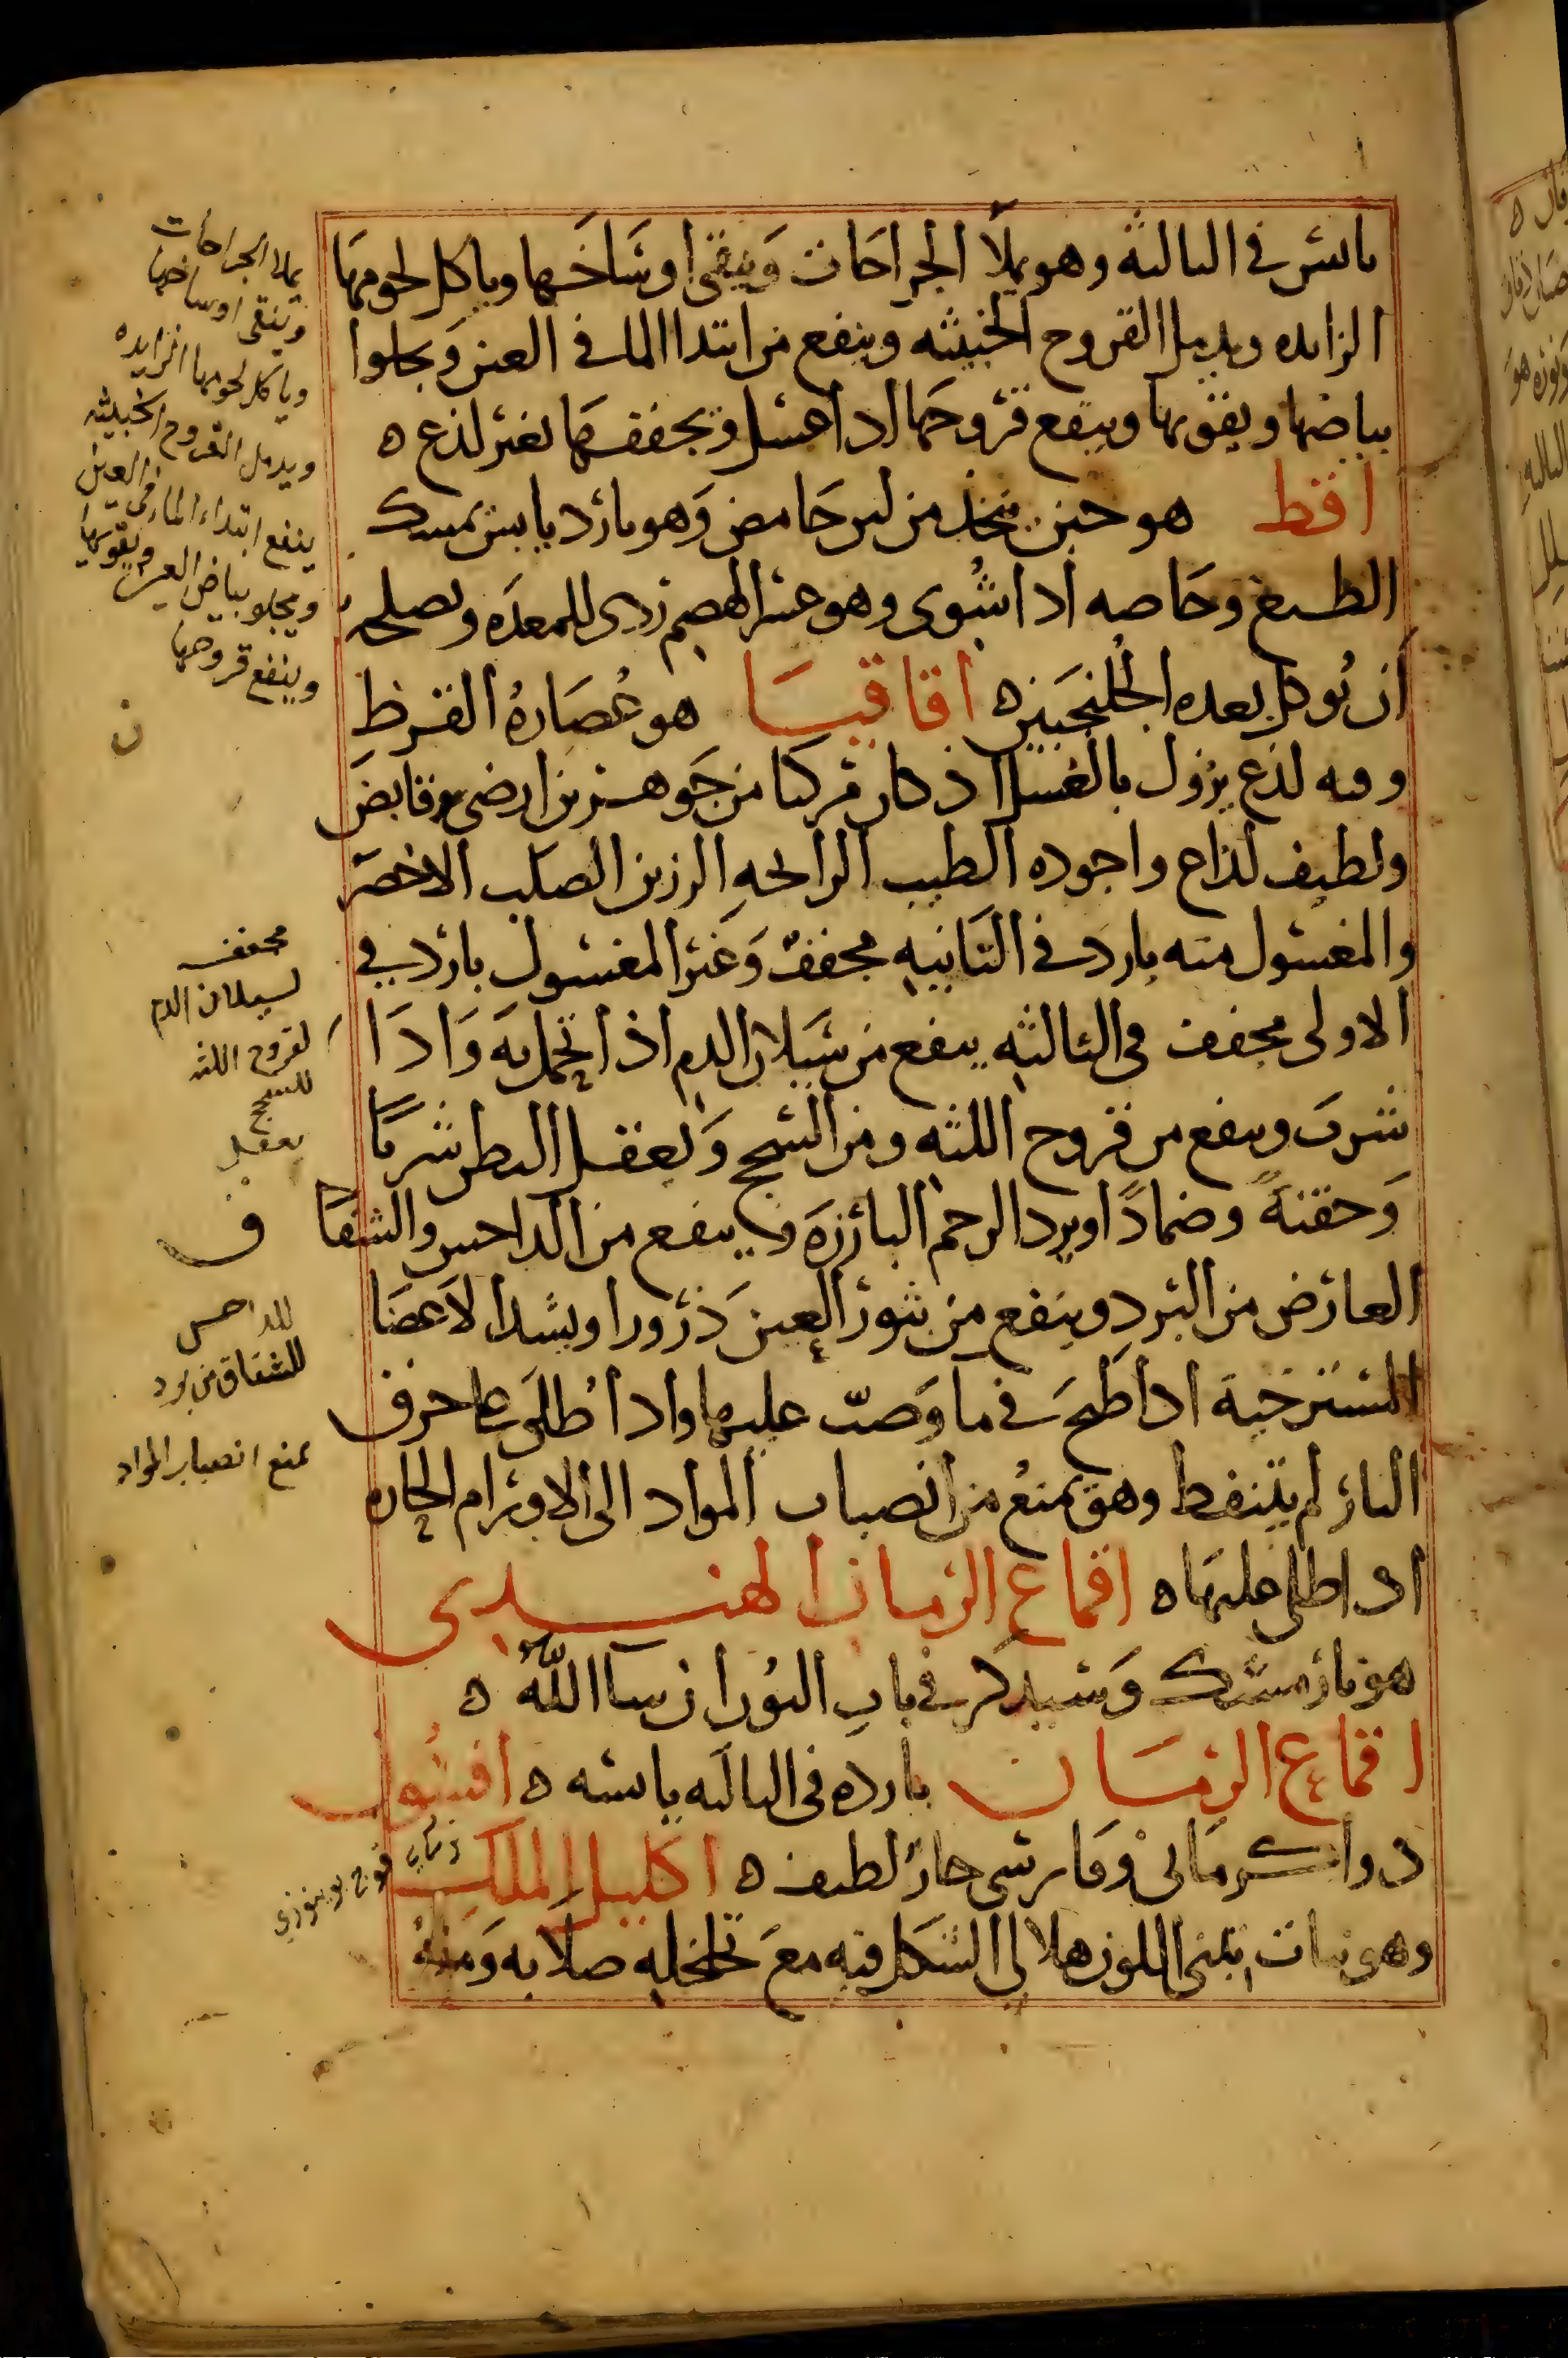 يابس في الثالثة وهو يملأ الجراحات وينقي اوساخها وياكل لحومها
الزايده ويدمل القروح الخبيثه وينفع من ابتدا الما في العين ويجلوا
بياضها ويقويها وينفع قروحها اذا غسل ويجففها بغير لذع ه
اقط هو جبن متخذ من لبن حامض وهو بارد يابس يمسك
الطبع وخاصه اذا شوى وهو عسر الهضم ردى للمعده ويصلحه
أن يوكل بعده الجلنجبين ه اقاقيا هو عصارة القرظ
وفيه لذع يزول بالغسل اذ كان مركبا من جوهرين ارضي قابض
ولطيف لذاع واجوده الطيب الرائحة الرزين الصلب الاخضر
والمغسول منه بارد في الثانيه مجفف وغير المغسول بارد في
الاولى مجفف في الثالثه ينفع من سيلان الدم اذا تحمل به واذا
شرب وينفع من قروح اللثه ومن السحج ويعقل البطن شربا
وحقنة وضمادا ويرد الرحم البارزة وينفع من الداحس والشقاق
العارض من البرد وينفع من بثور العين ذرورا ويشد الاعضا
المسترخية اذا طبخ في ما وصب عليها واذا طلى على حرق
النار لم يتنفط وهو يمنع من انصباب المواد الى الاورام الحاره
اذا طلى عليها ه اقماع الرمان الهندى
هو نارمشك وسيذكر في باب النون ان شا الله ه
اقماع الرمان بارده في الثالثه يابسه ه اقسون
دوا كرماني وفارسى حار لطيف ه اكليل الملك
وهو نبات تبنى اللون هلالي الشكل فيه مع تخلخله صلابه ومنه
يملا الجراحات
وينقى اوساخها
وياكل لحومها الزايده
ويدمل القروح الخبيثه
ينفع ابتداء الماء في العين
ويجلو بياض العين ويقويها
وينفع قروحها
ن
مجفف
لسيلان الدم
لقروح اللثه
للسحج
يعقل
ف
للداحس
للشقاق من برد
يمنع انصباب المواد